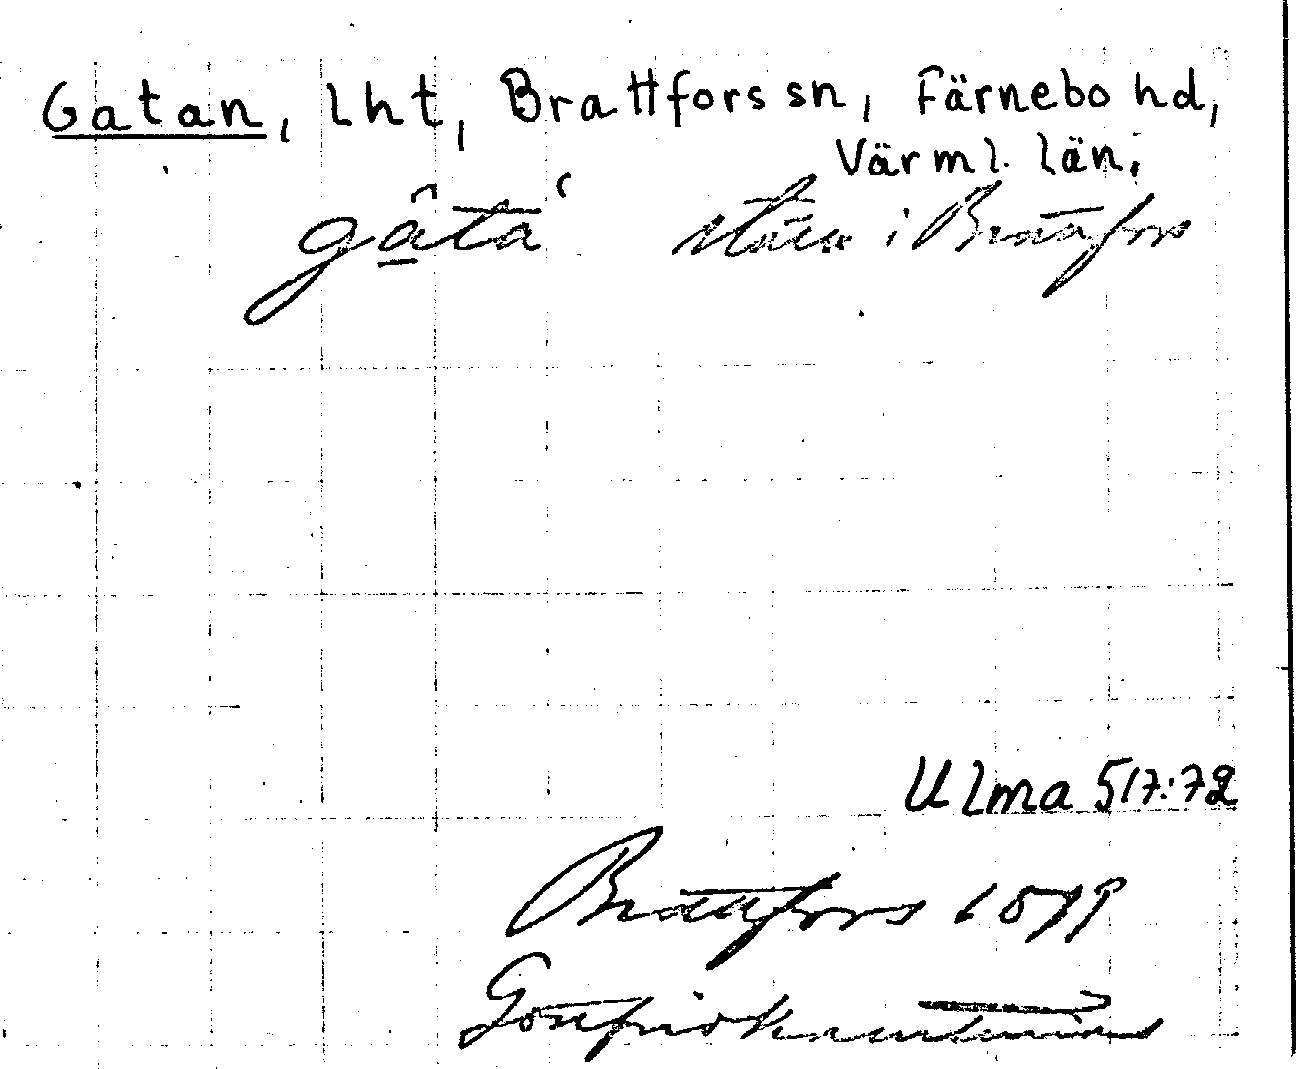 Gatan, lht, Brattfors sn, Färnebo hd,
Värml. län.
gâta ställe i Brattfors
Ulma 517:72
Brattfors
Gottfrid